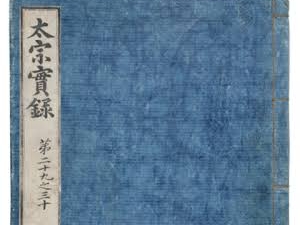 太宗實錄
第二十九之三十